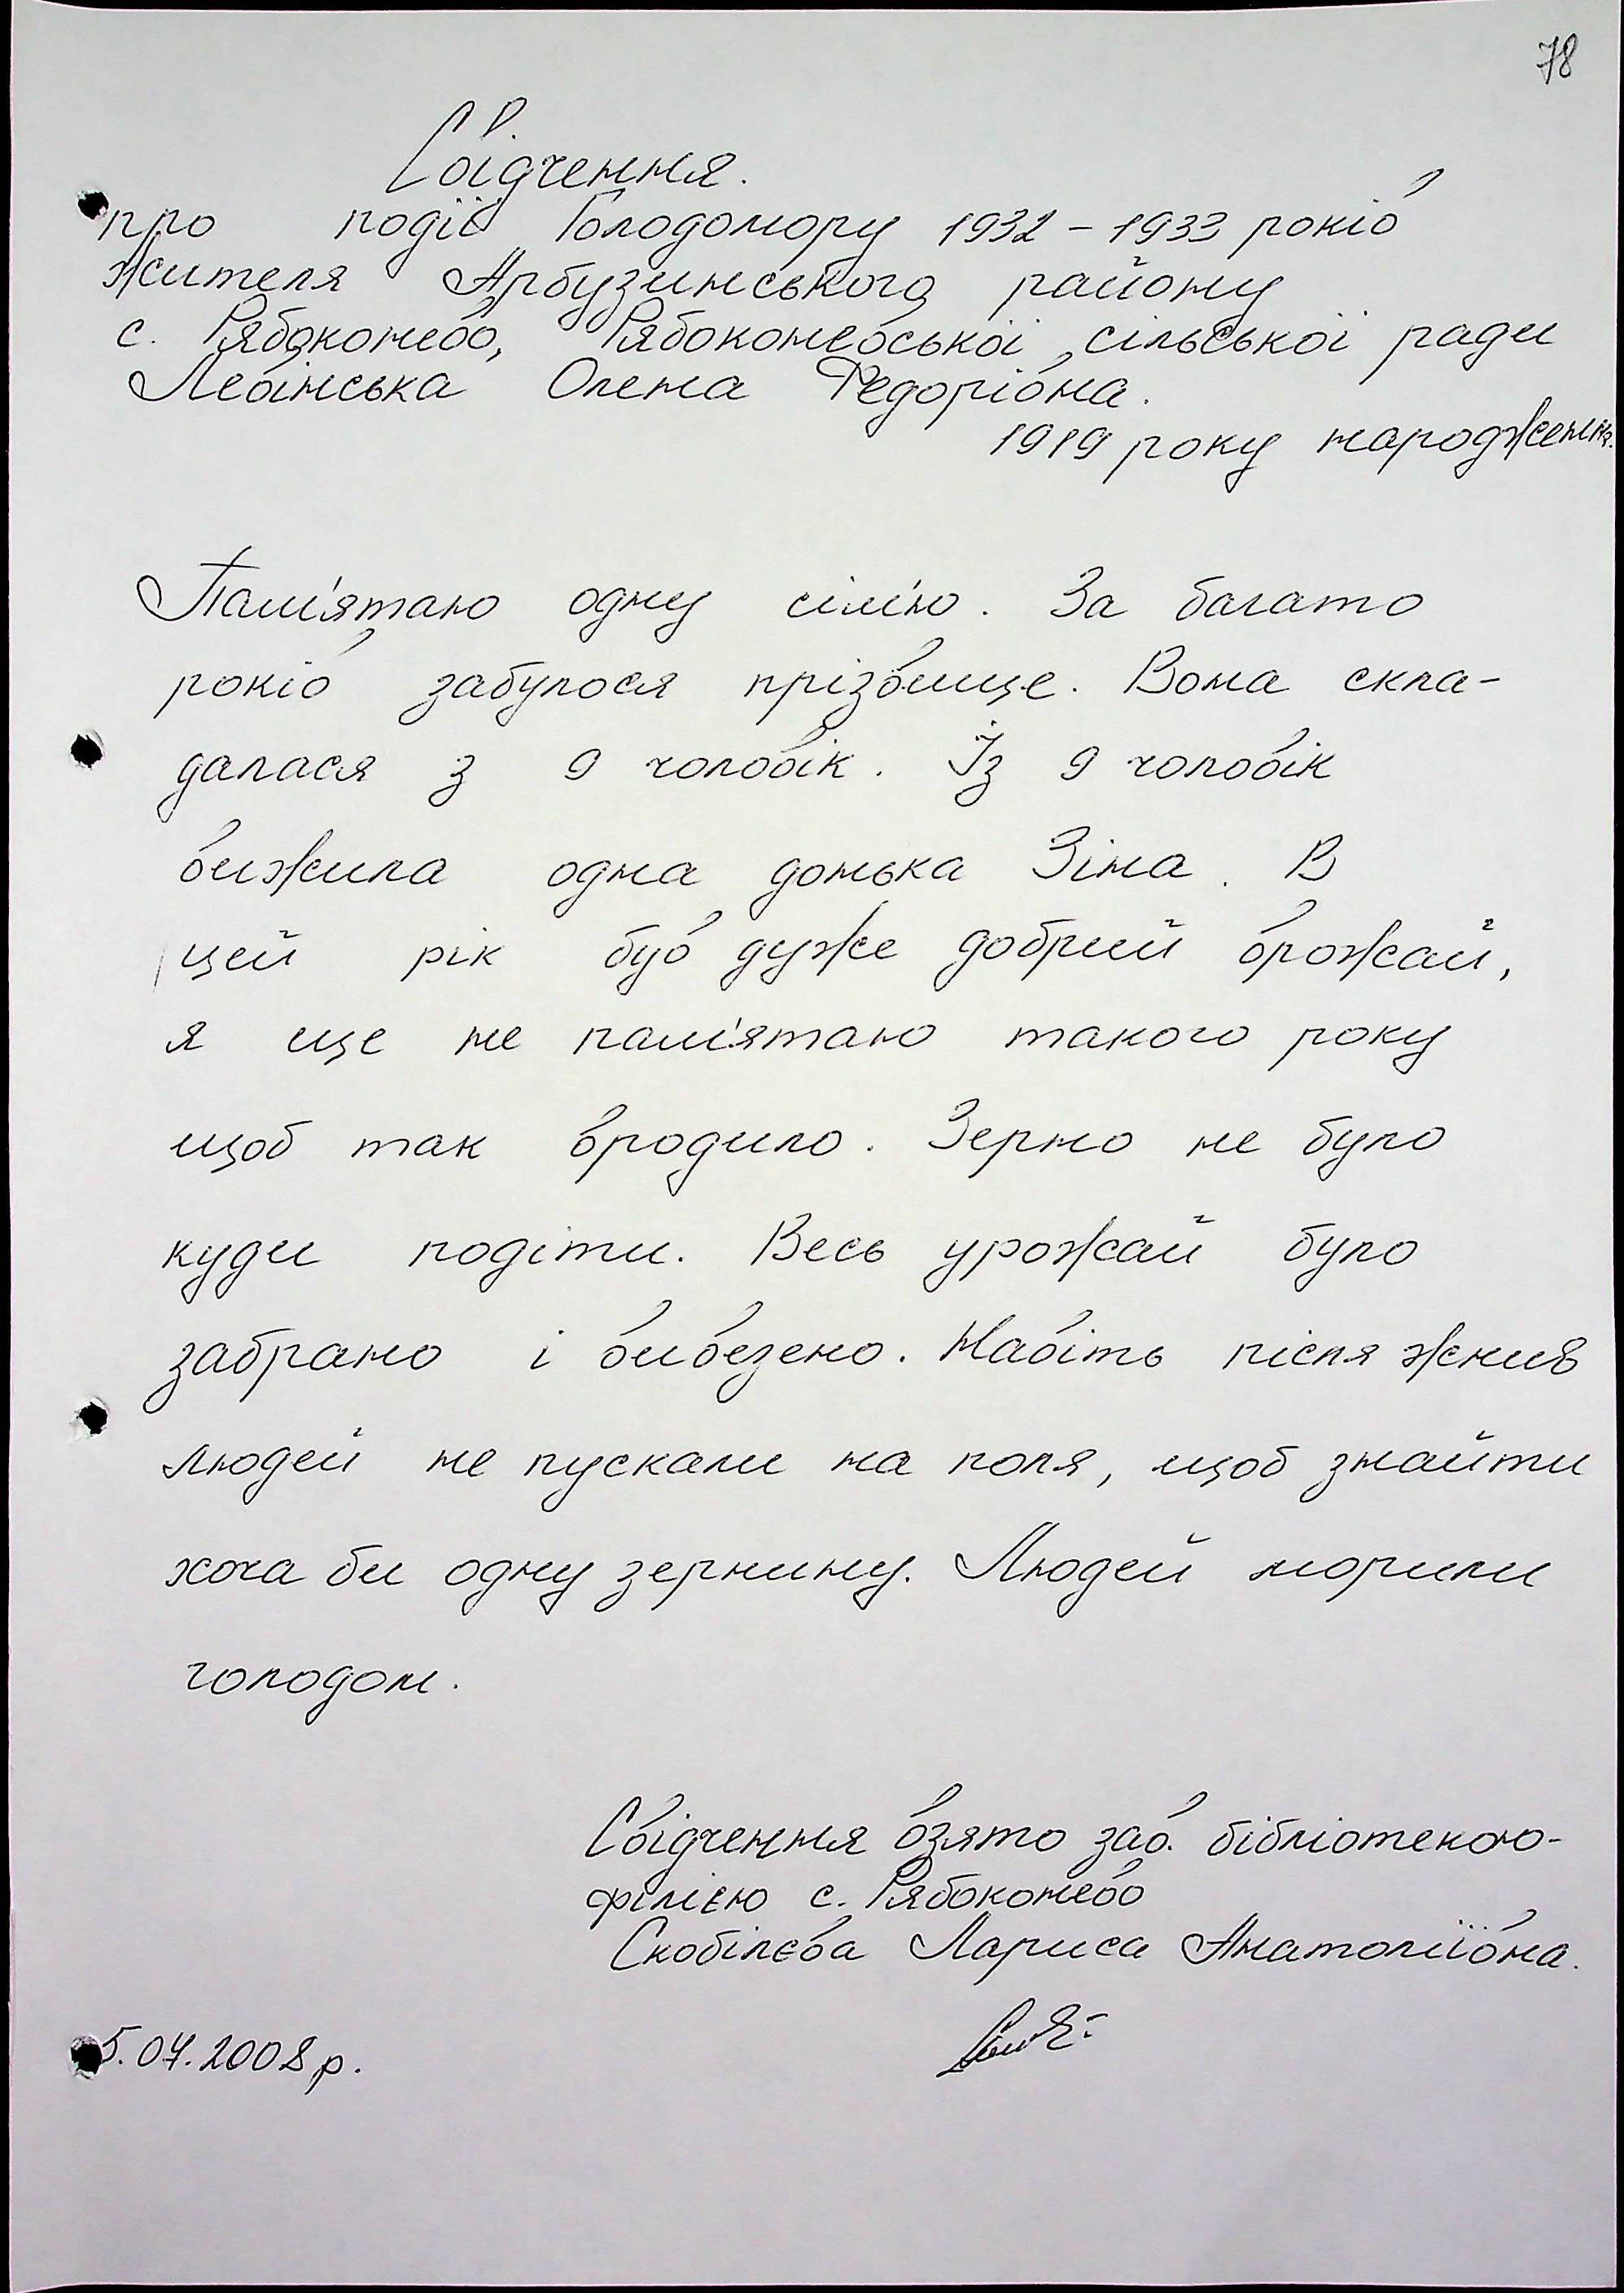 78
Свідчення.
про події Голодомору 1932 – 1933 років
жителя Арбузинського району
с. Рябоконево, Рябоконевської сільської ради
Левінська Олена Федорівна.
1919 року народження.
Пам'ятаю одну сім'ю. За багато
років забулося прізвище. Вона скла-
далася з 9 чоловік. Із 9 чоловік
вижила одна донька Зіна. В
цей рік був дуже добрий врожай,
я ще не пам'ятаю такого року
щоб так вродило. Зерно не було
куди подіти. Весь урожай було
забрано і вивезено. Навіть після жнив
людей не пускали на поля, щоб знайти
хоча би одну зернину. Людей морили
голодом.
Свідчення взято зав. бібліотекою-
філією с. Рябоконево
Скобілєва Лариса Анатоліївна.
5.04.2008 р.